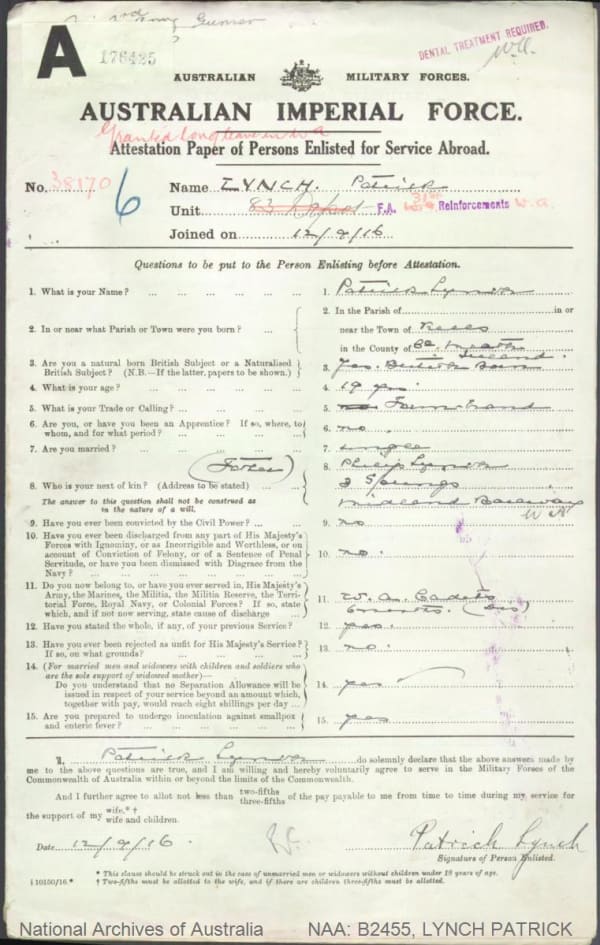 Gunner
DENTAL TREATMENT REQUIRED.
A
176425
AUSTRALIAN MILITARY FORCES.
AUSTRALIAN IMPERIAL FORCE.
Granted long leave in W A
Attestation Paper of Persons Enlisted for Service Abroad.
No. 38170
6
Name LYNCH. Patrick
Unit 83 F.A. 31st Reinforcements W.A.
Joined on 12/9/16
Questions to be put to the Person Enlisting before Attestation.
1. What is your Name? ... 1. Patrick Lynch
2. In or near what Parish or Town were you born? ... 2. In the Parish of in or
near the Town of Kells
in the County of Co. Meath
Ireland.
3. Are you a natural born British Subject or a Naturalised
British Subject? (N.B.—If the latter, papers to be shown.) 3. Yes. British Born
4. What is your age? ... 4. 19 yrs.
5. What is your Trade or Calling? ... 5. Farm Hand
6. Are you, or have you been an Apprentice? If so, where, to
whom, and for what period? ... 6. no.
7. Are you married? ... 7. single
8. Who is your next of kin? (Address to be stated) ... 8. Philip Lynch
(Father)
3 Springs
Midland Railway
W A
The answer to this question shall not be construed as
in the nature of a will.
9. Have you ever been convicted by the Civil Power? ... 9. no
10. Have you ever been discharged from any part of His Majesty's
Forces with Ignominy, or as Incorrigible and Worthless, or on
account of Conviction of Felony, or of a Sentence of Penal
Servitude, or have you been dismissed with Disgrace from the
Navy? ... 10. no.
11. Do you now belong to, or have you ever served in, His Majesty's
Army, the Marines, the Militia, the Militia Reserve, the Terri-
torial Force, Royal Navy, or Colonial Forces? If so, state
which, and if not now serving, state cause of discharge 11. W. A. Cadets
months. (Dis)
12. Have you stated the whole, if any, of your previous Service? 12. yes.
13. Have you ever been rejected as unfit for His Majesty's Service?
If so, on what grounds? ... 13. no.
14. (For married men and widowers with children and soldiers who
are the sole support of widowed mother)—
Do you understand that no Separation Allowance will be
issued in respect of your service beyond an amount which,
together with pay, would reach eight shillings per day ... 14. yes
15. Are you prepared to undergo inoculation against smallpox
and enteric fever? ... 15. yes
I, Patrick Lynch do solemnly declare that the above answers made by
me to the above questions are true, and I am willing and hereby voluntarily agree to serve in the Military Forces of the
Commonwealth of Australia within or beyond the limits of the Commonwealth.
And I further agree to allot not less than two-fifths three-fifths of the pay payable to me from time to time during my service for
the support of my wife.*† wife and children.
Date 12/9/16
Patrick Lynch
Signature of Person Enlisted.
* This clause should be struck out in the case of unmarried men or widowers without children under 18 years of age.
† Two-fifths must be allotted to the wife, and if there are children three-fifths must be allotted.
‡10150/16.*
National Archives of Australia NAA: B2455, LYNCH PATRICK